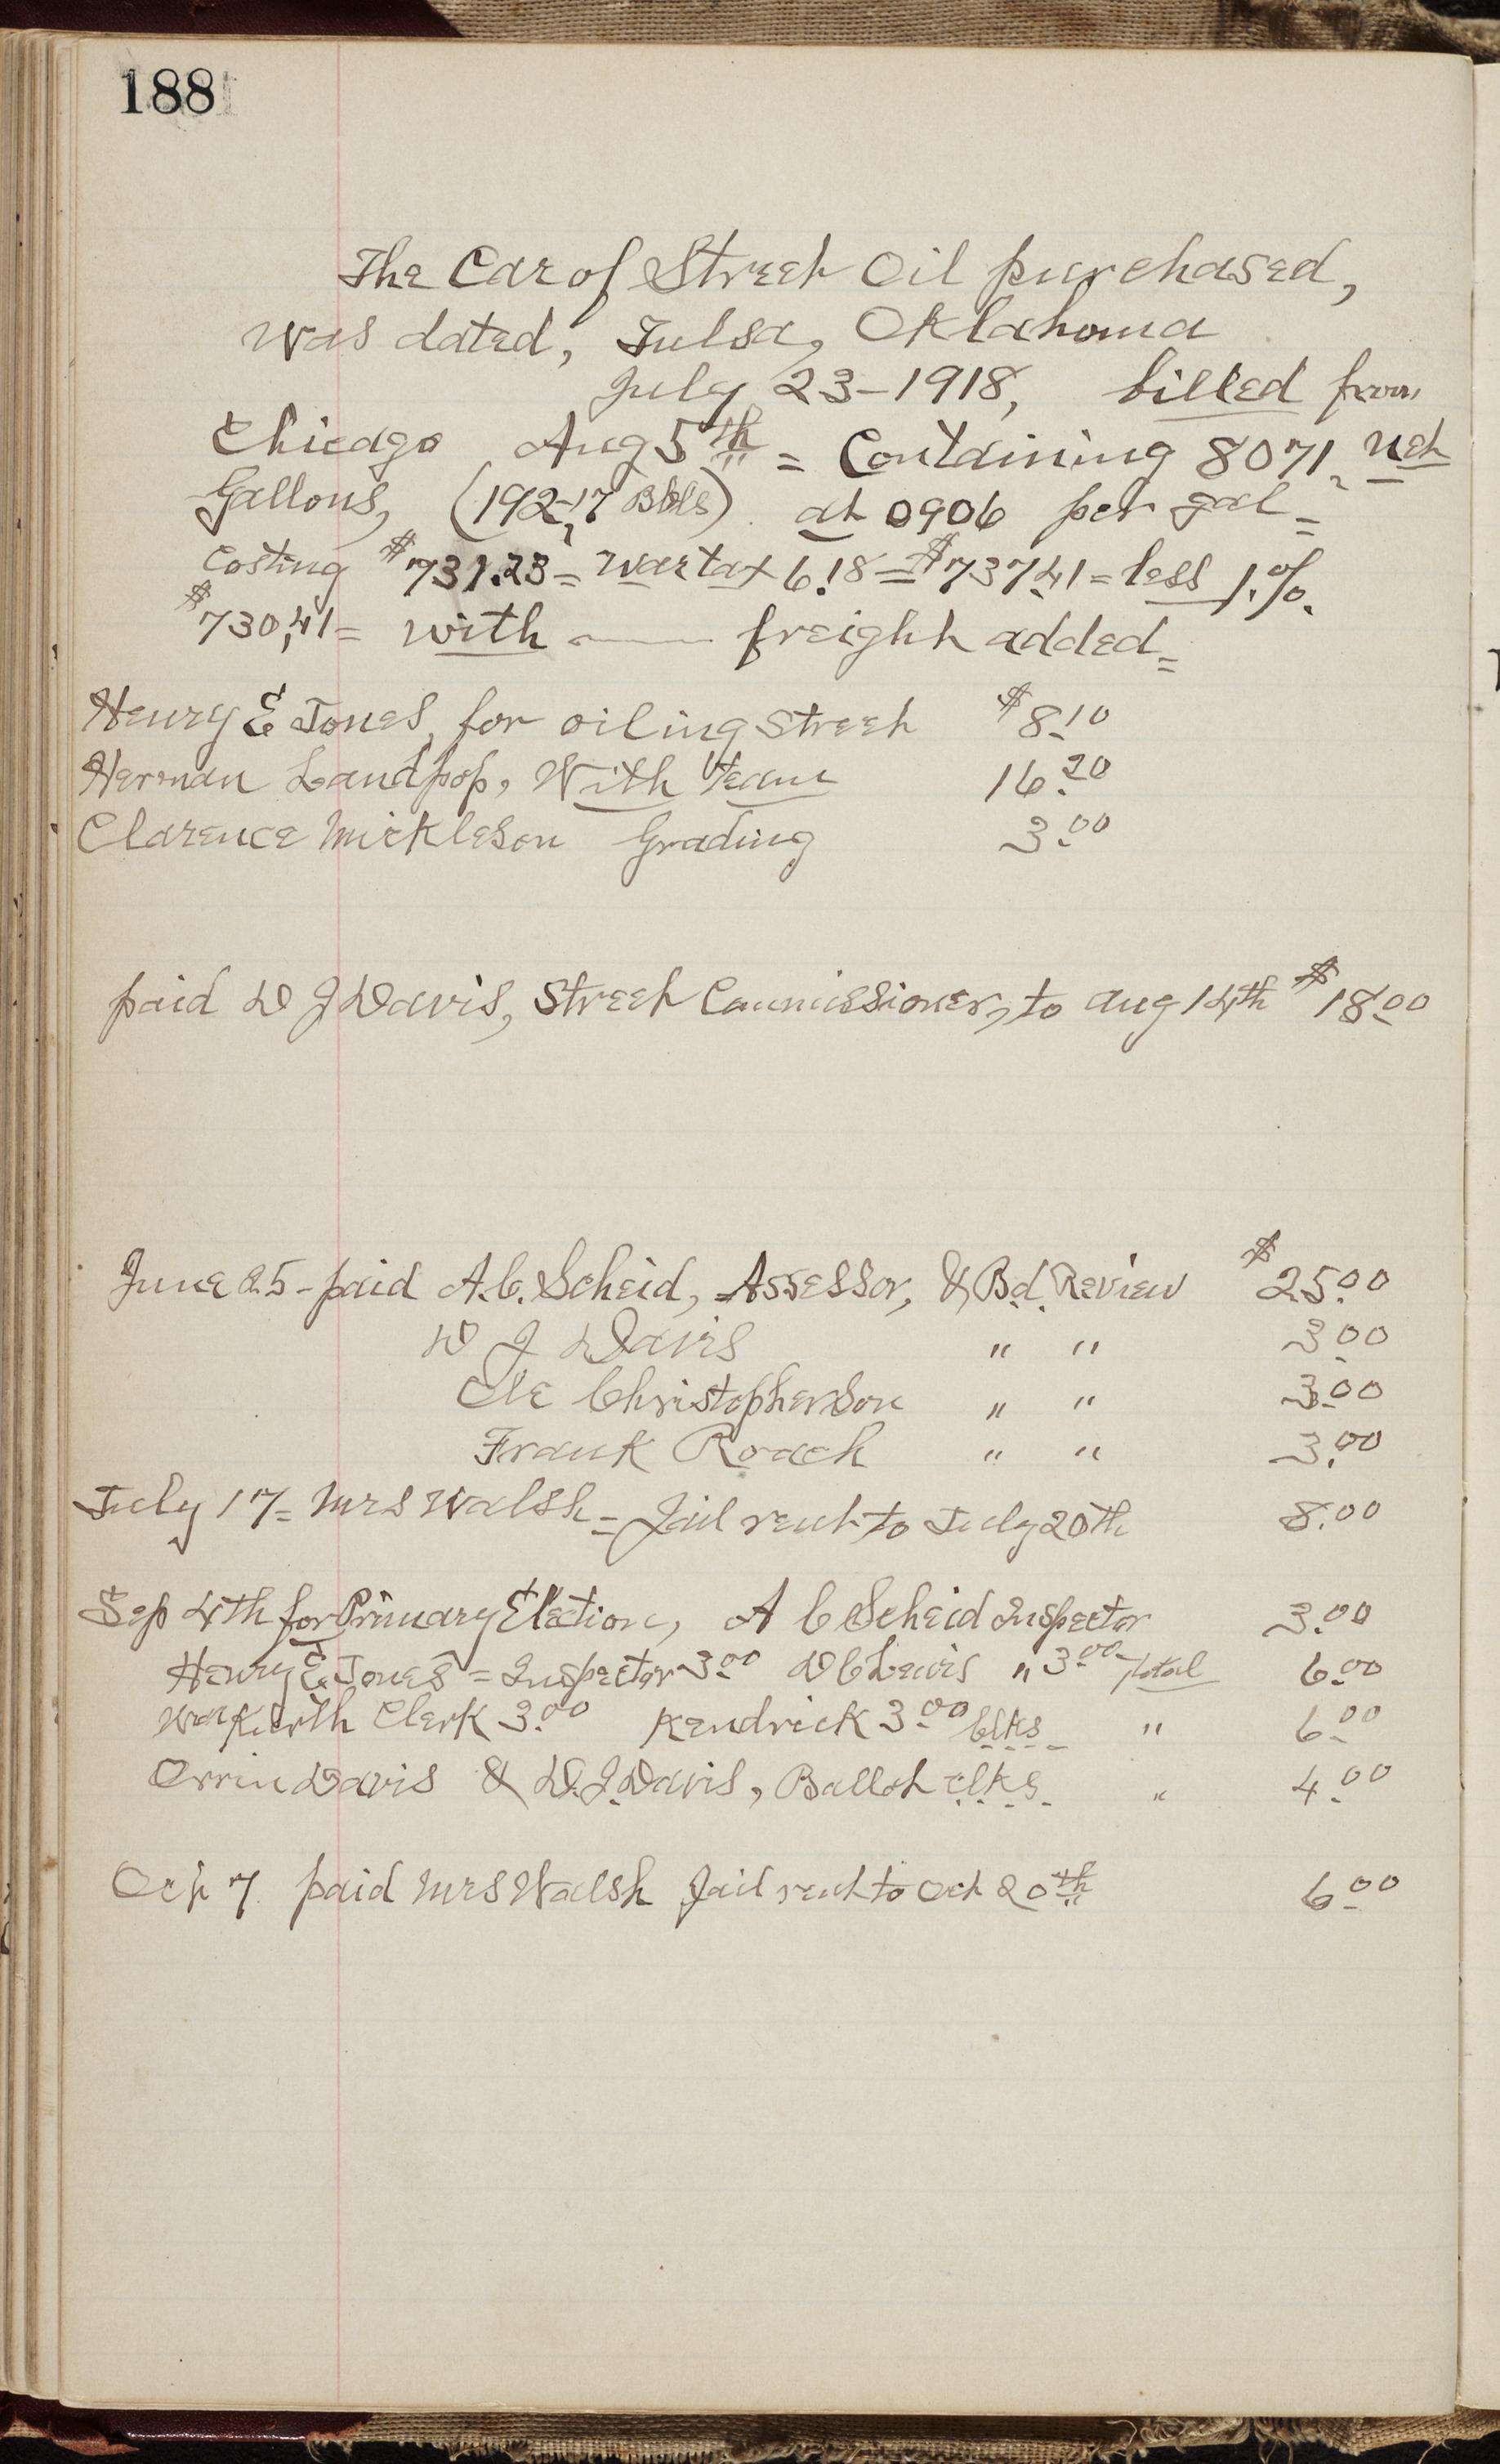 188
The Car of Street Oil purchased,
was dated, Tulsa, Oklahoma
July 23-1918, billed from
Chicago Aug 5th = Containing 8071, net
Gallons, (192-17 Bbls) at 0906 per gal=
Costing $731.23= war tax 6.18=$737.41=less 1.%.
$730,41= with —— freight added=
Henry E Jones, for oiling Street $8.10
Herman Landpop, With Team 16.20
Clarence Mickleson Grading 3.00
paid D J Davis, Street Commissioner, to Aug 14th $18.00
June 25-paid A.C. Scheid, Assessor, & Bd. Review $25.00
D J Davis " " 3.00
Ole Christopherson " " 3.00
Frank Roach " " 3.00
July 17= Mrs Walsh=Jail rent to July 20th 8.00
Sep 4th for Primary Election, A C Scheid Inspector 3.00
Henry E Jones=Inspector 3.00 D C Lewis " 3.00-total 6.00
Wm Kurth Clerk 3.00 Kendrick 3.00 clks " 6.00
Orrin Davis & D.J.Davis, Ballot clks. " 4.00
Oct 7. paid Mrs Walsh Jail rent to Oct 20th 6.00